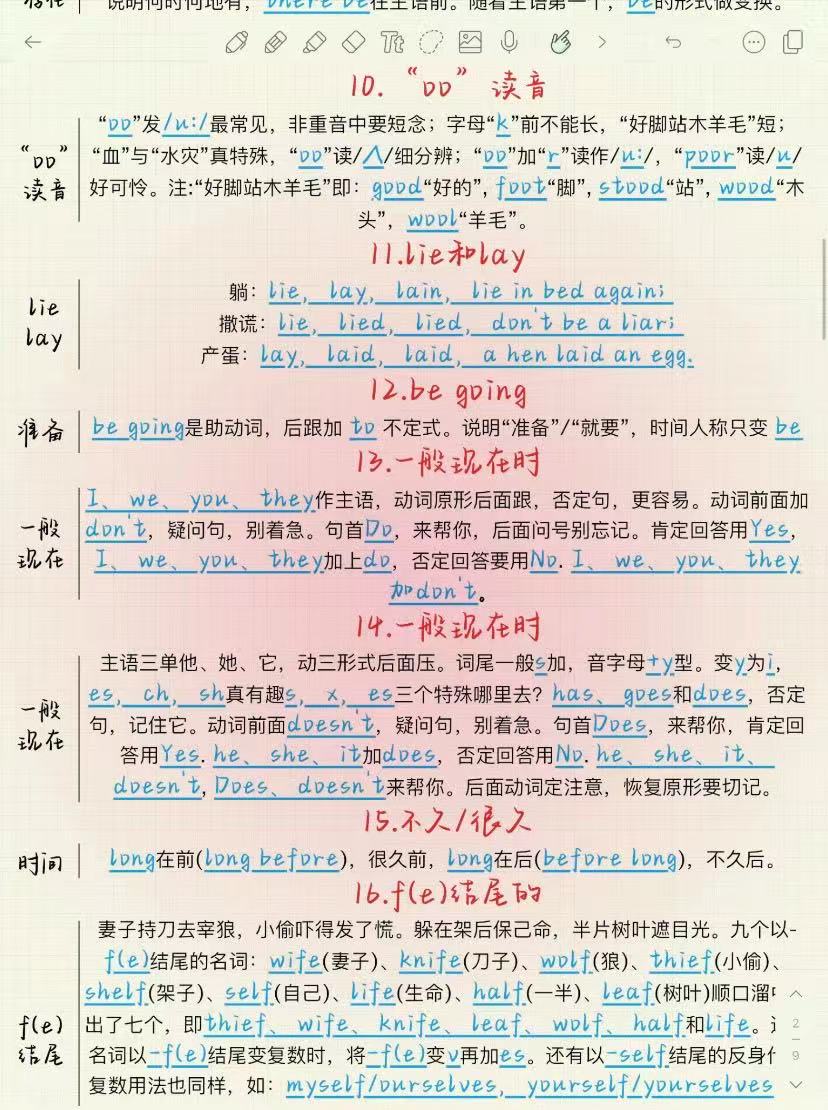 说明何时何地有，there be在主语前。随着主语第一个，be的形式做变换。
10. “oo” 读音
“oo”
读音
“oo”发/u:/最常见，非重音中要短念；字母“k”前不能长，“好脚站木羊毛”短；
“血”与“水灾”真特殊，“oo”读/Λ/细分辨；“oo”加“r”读作/u:/，“poor”读/u/
好可怜。注:“好脚站木羊毛”即：good“好的”, foot“脚”, stood“站”, wood“木
头”，wool“羊毛”。
11.lie和lay
lie
lay
躺：lie, lay, lain, lie in bed again;
撒谎：lie, lied, lied, don't be a liar;
产蛋：lay, laid, laid, a hen laid an egg.
12.be going
准备
be going是助动词，后跟加 to 不定式。说明“准备”/“就要”，时间人称只变 be
13.一般现在时
一般
现在
I、we、you、they作主语，动词原形后面跟，否定句，更容易。动词前面加
don't，疑问句，别着急。句首Do，来帮你，后面问号别忘记。肯定回答用Yes，
I、we、you、they加上do，否定回答要用No. I、we、you、they
加don't。
14.一般现在时
一般
现在
主语三单他、她、它，动三形式后面压。词尾一般s加，音字母+y型。变y为i，
es, ch, sh真有趣s, x, es三个特殊哪里去？has、goes和does，否定
句，记住它。动词前面doesn't，疑问句，别着急。句首Does，来帮你，肯定回
答用Yes. he、she、it加does，否定回答用No. he、she、it、
doesn't, Does、doesn't来帮你。后面动词定注意，恢复原形要切记。
15.不久/很久
时间
long在前(long before)，很久前，long在后(before long)，不久后。
16.f(e)结尾的
f(e)
结尾
妻子持刀去宰狼，小偷吓得发了慌。躲在架后保己命，半片树叶遮目光。九个以-
f(e)结尾的名词：wife(妻子)、knife(刀子)、wolf(狼)、thief(小偷)、
shelf(架子)、self(自己)、life(生命)、half(一半)、leaf(树叶)顺口溜中
出了七个，即thief、wife、knife、leaf、wolf、half和life。
名词以-f(e)结尾变复数时，将-f(e)变v再加es。还有以-self结尾的反身代
复数用法也同样，如：myself/ourselves, yourself/yourselves
2
9